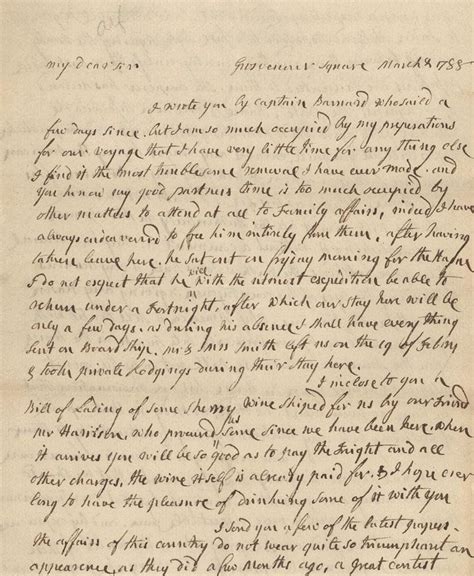 my dear sir Grosvenor Square March 8 1788
I wrote you by captain Barnard who saild a
few days since. but I am so much occupied by my preperations
for our voyage that I have very little time for any thing else
I find it the most troublesome removal I have ever made. and
you know my good partners time is too much occupied by
other matters to attend at all to Family affairs, indeed I have
always endeavourd to free him intirely from them, after having
taken leave here. he sat out on fryday morning for the Hague
I do not expect that he will with the utmost expedition be able to
return under a Fortnight, after which our stay here will be
only a few days, as during his absence I shall have every thing
sent on Board Ship. mr & mrs Smith left us on the 29 of Febry
& took private Lodgings during their Stay here.
I inclose to you a
Bill of Lading of some Sherry wine shiped for us by our Friend
mr Harrison, who procured us some since we have been here. when
it arrives you will be so good as to pay the fright and all
other charges, the wine itself is already paid for. & I hope ever
long to have the pleasure of drinking some of it with you
I send you a few of the latest papers.
the affairs of this country do not wear quite so triumphant an
appearence as they did a few months ago, a great contest